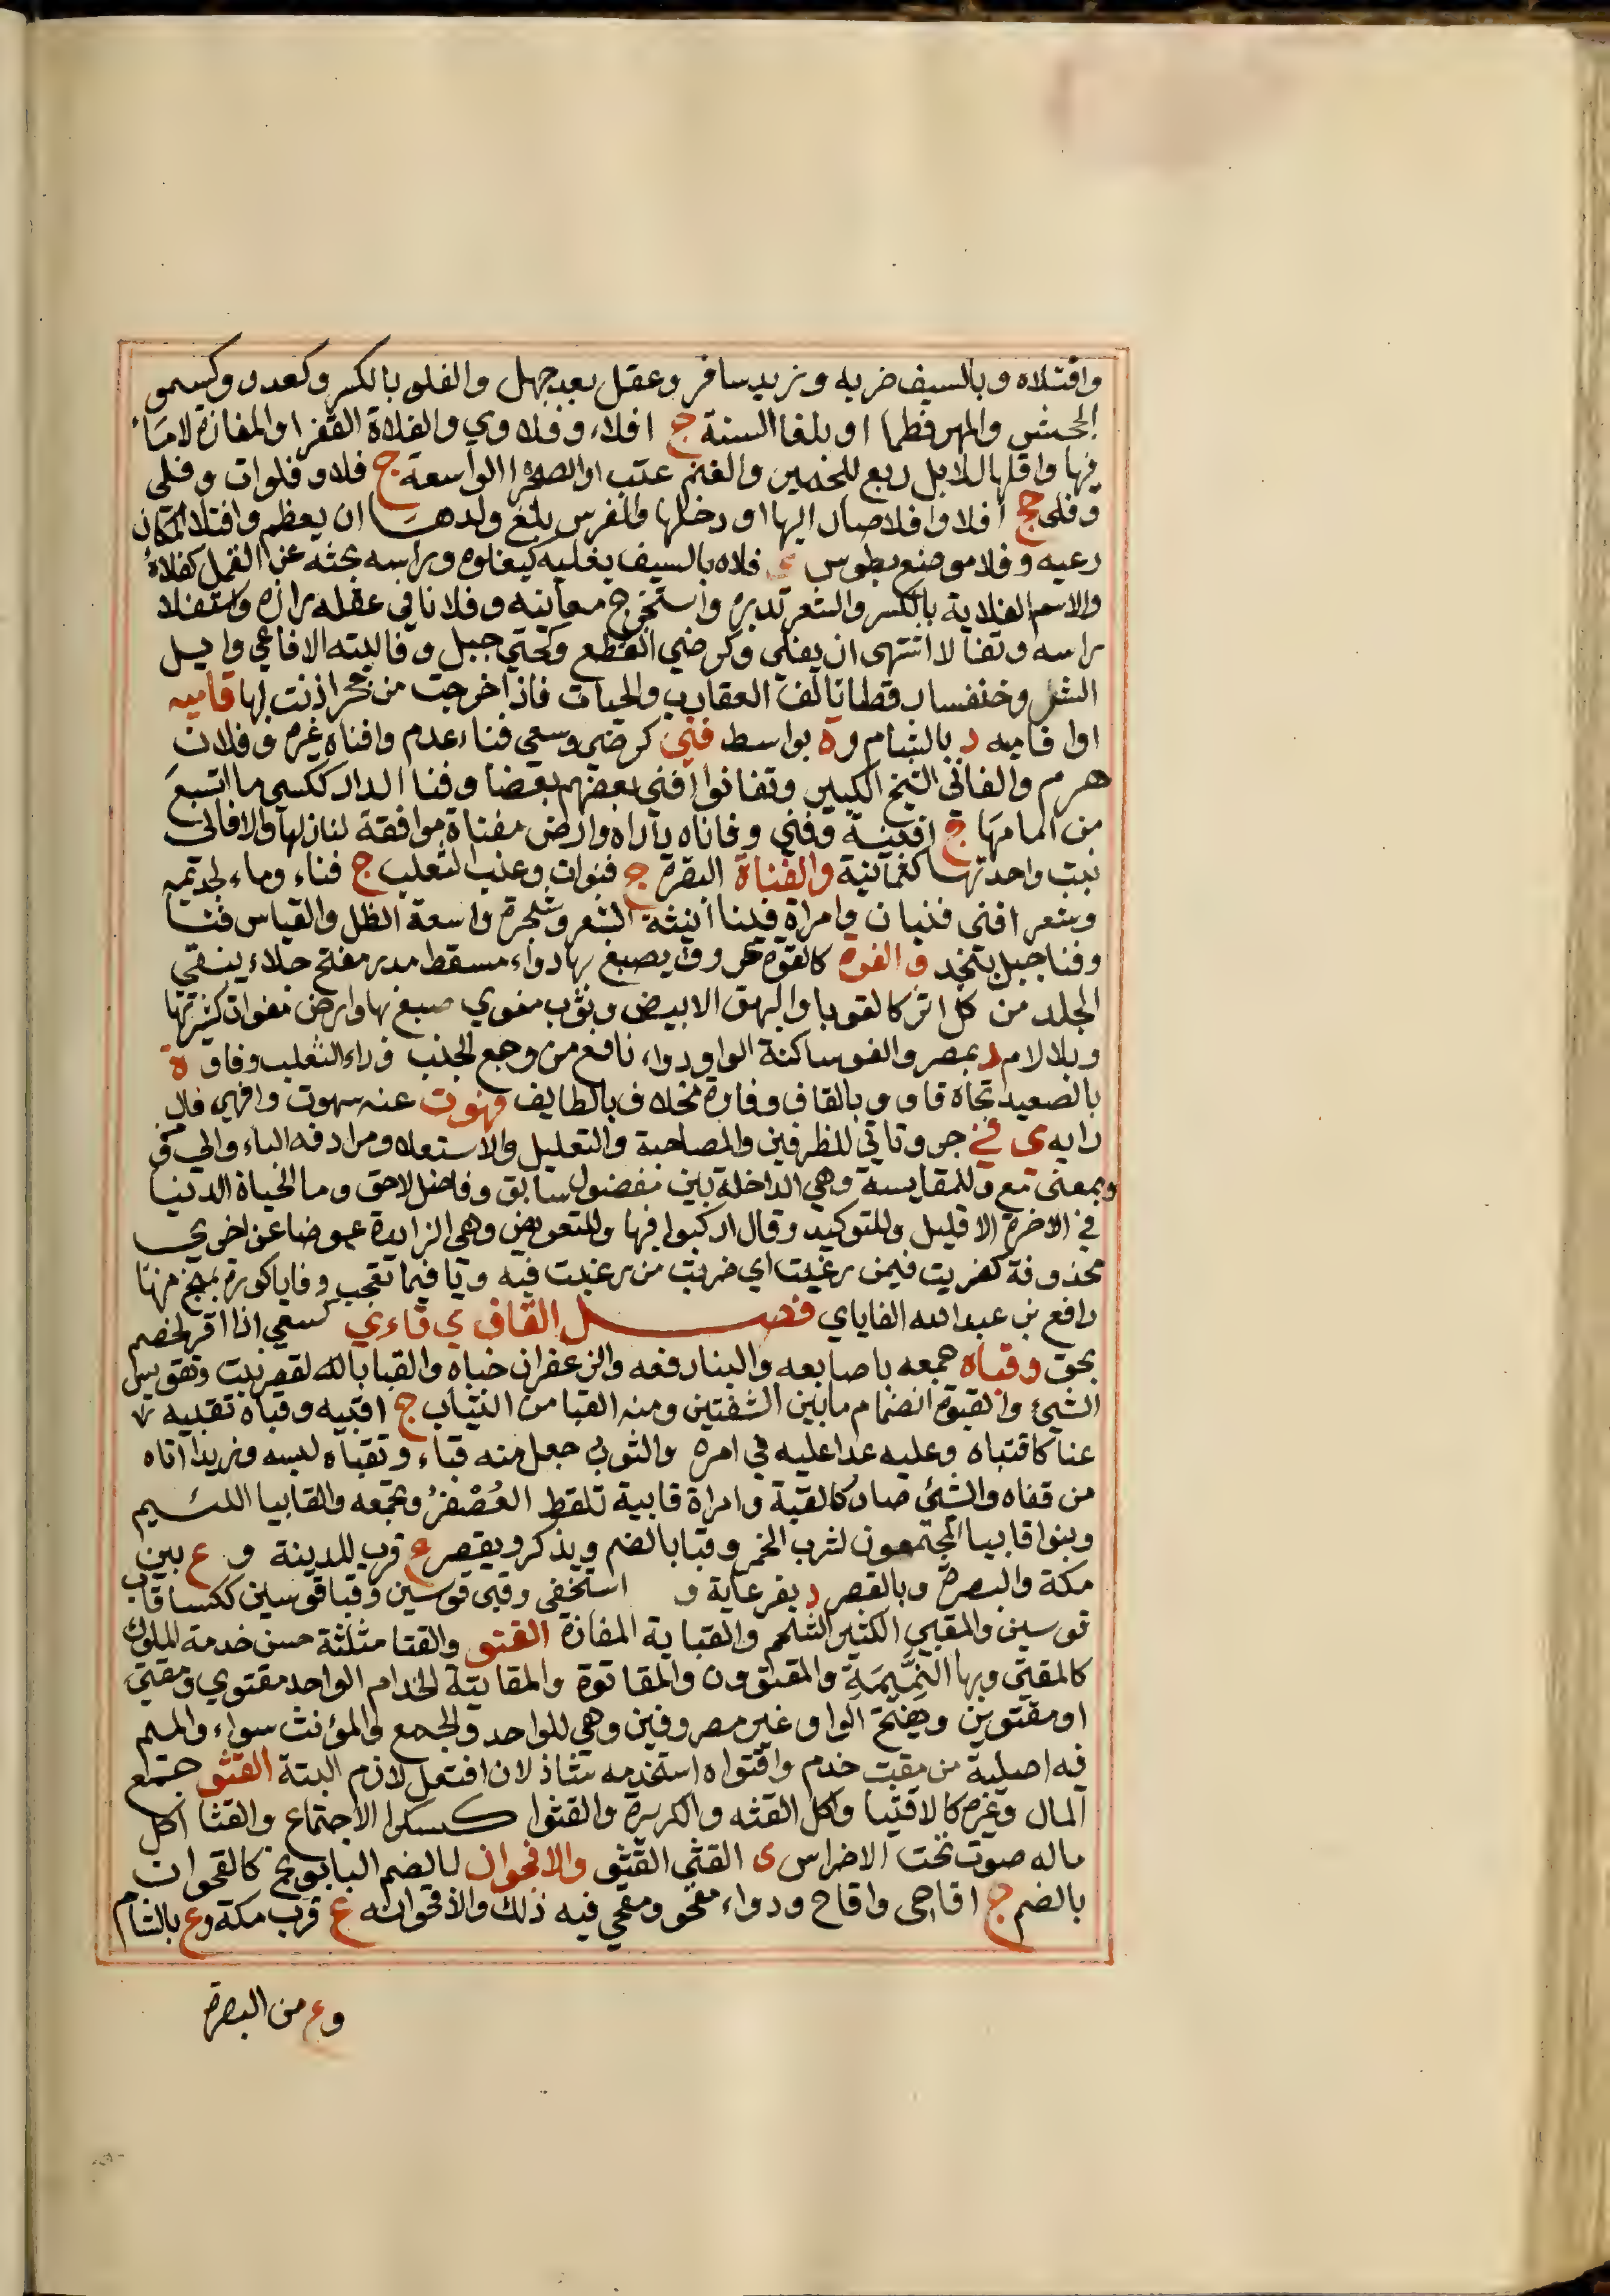 وافتلاه وبالسيف ضربه وزيد سافر وعقل بعد جهل والفلو بالكسر وكعدو وكسمو
الجحش والمهر فطما او بلغا السنة ج افلاء وفلاوي والفلاة القفر او المفازة لا ماء
فيها واقلها للابل ربع للحمير والغنم غب او الصحرا الواسعة ج فلا وفلوات وفلي
وفلي ج افلا وافلا صار اليها او دخلها والفرس بلغ ولدها ان يعظم وافتلا المكان
رعيه وفلا موضع بطوس ي فلاه بالسيف يفليه كيفلوه وراسه بحثه عن القمل كفلاه
والاسم الفلاية بالكسر والشعر تدبره واستخرج معانيه وفلانا في عقله رازه واستفلا
راسه وتفالا اشتهى ان يفلى وكرضي انقطع وكحتي جبل وفالية الافاعي وايل
الشر وخنفسا رقطا تالف العقارب والحيات فاذا خرجت من جحر اذنت بها فاميه
او افاميه د بالشام وة بواسط فني كرضي وسعي فناء عدم وافناه غيره وفلان
هرم والفاني الشيخ الكبير وتفانوا افني بعضهم بعضا وفنا الدار ككسي ما اتسع
من امامها ج افنية وفني وفاناه داراه وارض مفناة موافقة لنازلها والافاني
نبت واحدتها كثمانية والفناة البقرة ج فنوات وعنب الثعلب ج فناء وماء لجذيمه
وشعر افني فينان وامراة فنوا اثيثة الشعر وشجرة واسعة الظل والقياس فنا
وفنا جبل بنجد و الفوة كالقوة عروق يصبغ بها دواء مسقط مدر مفتح جلاء ينقي
الجلد من كل اثر كالقوبا والبهق الابيض وثوب مفوي صبغ بها وارض مفواة كثيرتها
وبلا لام د بمصر والفو ساكنة الواو دواء نافع من وجع الجنب وداء الثعلب وفاو ة
بالصعيد تجاه قاو و بالقاف وفارة مخلاف بالطايف فهوت عنه سهوت وافهي فال
رايه ي في جر وتاتي للظرفين والمصاحبة والتعليل والاستعلا ومرادفه الباء والي ومن
وبمعنى مع وللمقايسة وهي الداخلة بين مفضول سابق وفاضل لاحق وما الحياة الدنيا
في الاخرة الا قليل وللتوكيد وقال اركبوا فيها وللتعويض وهي الزايدة عوضا عن اخري
محذوفة كضربت فيمن رغبت اي ضربت من رغبت فيه ويا فيما تعجب وفايا كورة بمنبج منها
رافع بن عبد الله الفاياي فصل القاف ي قاءي كسعي اذا اقر لخصم
بحق و قباه جمعه باصابعه والبنا رفعه والزعفران جناه والقبا بالقصر نبت وتقويس
الشيء والقبوة انضمام ما بين الشفتين ومنه القبا من الثياب ج اقبيه وقباه تقبيه
عباه كاقتباه وعليه عدا عليه في امره والثوب جعل منه قباء وتقباه لبسه وزيدا اتاه
من قفاه والشئ صار كالقبة وامراة قابية تلقط العصفر وتجمعه والقابيا اللئيم
وبنوا قابيا المجتمعون لشرب الخمر وقبا بالضم ويذكر ويقصر ع قرب المدينة و ع بين
مكة والبصرة وبالقصر د بفرغانة و استخفى وقبى قوسين وقبا قوسين ككسا قاب
قوسين والمقبي الكثير الشحم والقباية المفازة القتو والقتا مثلثة حسن خدمة الملوك
كالمقتي وبها النميمة والمقتوون والمقاتوة والمقاتية الخدام الواحد مقتوي ومقتي
او مقتوين ويفتح الواو غير مصروفين وهي للواحد والجمع والمؤنث سواء والميم
فيه اصلية من مقت خدم واقتواه استخدمه شاذ لان افتعل لازم البتة القثو جمع
المال وغيره كالاقتثا واكل القثه والكربرة والقثوا كسكرا الاجتماع والقثا اكل
ماله صوت تحت الاضراس ي القثي القثو والاقحوان بالضم البابونج كالقحوان
بالضم ج اقاحي واقاح ودواء مقحو ومقحي فيه ذلك والاقحوانه ع قرب مكة وع بالشام
وع من البصرة